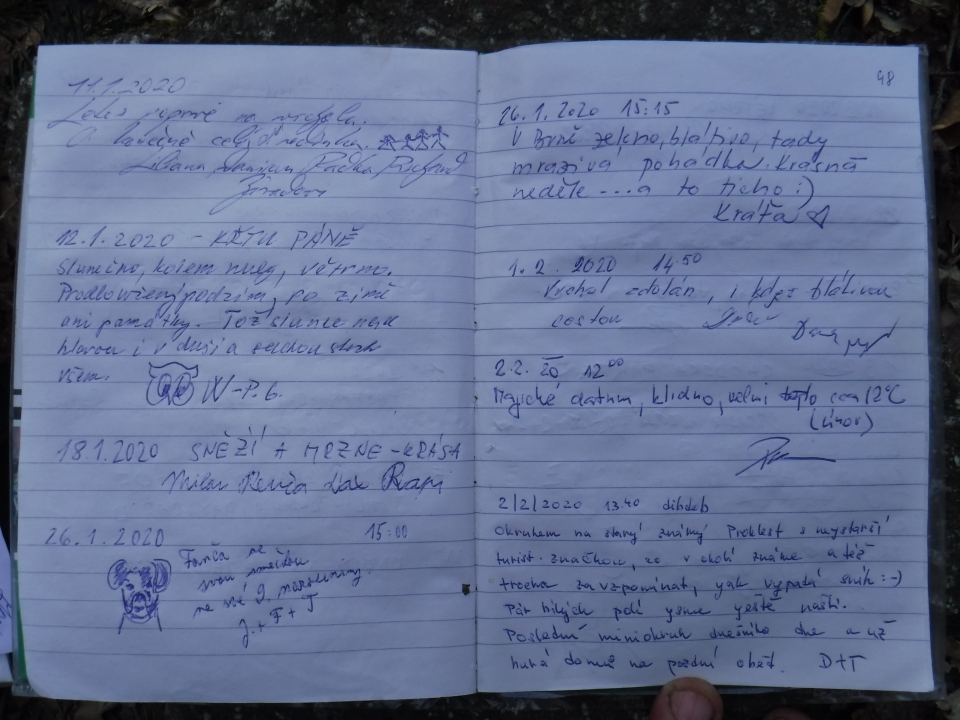 11.1.2020
Letos poprvé na vrcholu.
A konečně celá rodinka.
Radka Richard
12.1.2020 - KŘTU PÁNĚ
Slunečno, kolem mlhy, větrno.
Prodloužený podzim, po zimě
ani památky. Tož slunce nad
hlavou i v duši a
všem. W-P.6.
18.1.2020 SNĚŽÍ A MRZNE - KRÁSA
Milan Renča
26.1.2020 15:00
Fanča se
svou smečkou
na své 9. narozeniny.
J. + F + J
48
26.1.2020 15:15
V Brně zeleno, blátivo, tady
mrazivá pohádka. Krásná
neděle....a to ticho :)
Kráťa
1.2. 2020 14:50
Vrchol zdolán, i když blátivou
cestou
2.2. 20 12⁰⁰
Magické datum, klidno, velmi teplo cca 12°C
(únor)
2/2/2020 13.40
Okruhem na starý známý Proklest s nejstarší
turist. značkou, co v okolí známe a též
trocha zavzpomínat, jak vypadá sníh :-)
Pár bílých polí jsme ještě našli.
Poslední miniokruh dnešního dne a už
hurá domů na pozdní oběd. D+T